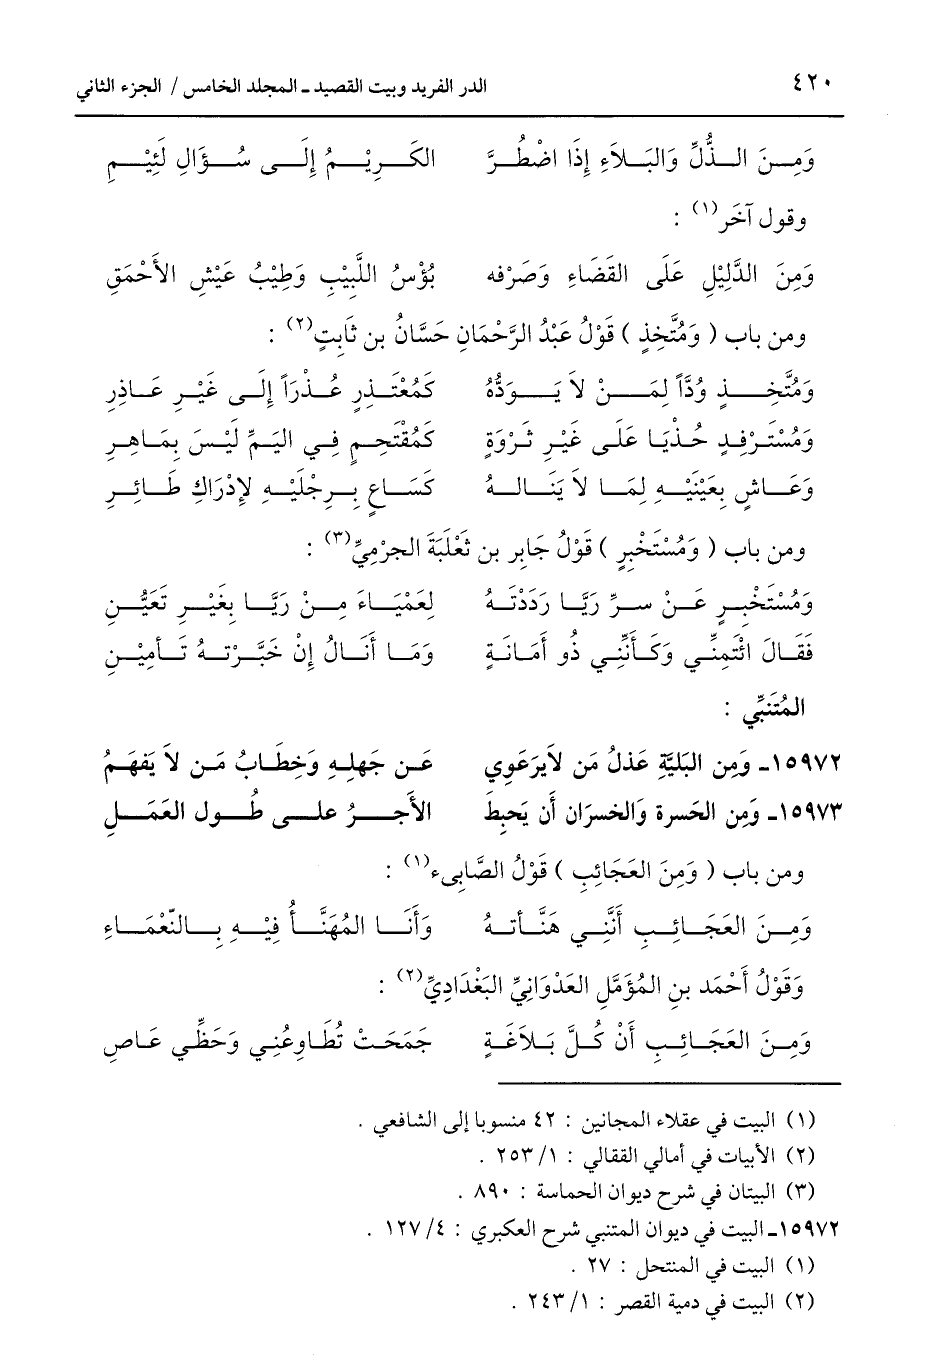 ٤٢٠ الدر الفريد وبيت القصيد - المجلد الخامس / الجزء الثاني
وَمِنَ الذُّلِّ وَالبَلاَءِ إِذَا اضْطُرَّ الكَرِيْمُ إِلَى سُؤَالِ لَئِيْمِ
وقول آخَر(١) :
وَمِنَ الدَّلِيْلِ عَلَى القَضَاءِ وَصَرْفه بُؤْسُ اللَّبِيْبِ وَطِيْبُ عَيْشِ الأَحْمَقِ
ومن باب ( وَمُتَّخِذٍ ) قَوْلُ عَبْدُ الرَّحْمَانِ حَسَّانُ بن ثَابِتٍ(٢) :
وَمُتَّخِذٍ وُدَّاً لِمَنْ لاَ يَوَدُّهُ كَمُعْتَذِرٍ عُذْرَاً إِلَى غَيْرِ عَاذِرِ
وَمُسْتَرْفِدٍ حُذْيَا عَلَى غَيْرِ ثَرْوَةٍ كَمُقْتَحِمٍ فِي اليَمِّ لَيْسَ بِمَاهِرِ
وَعَاشٍ بِعَيْنَيْهِ لِمَا لاَ يَنَالهُ كَسَاعٍ بِرِجْلَيْهِ لإِدْرَاكِ طَائِرِ
ومن باب ( وَمُسْتَخْبِرٍ ) قَوْلُ جَابِر بن ثَعْلَبَةَ الجرْمِيِّ(٣) :
وَمُسْتَخْبِرٍ عَنْ سِرِّ رَيَّا رَدَدْتهُ لِعَمْيَاءَ مِنْ رَيَّا بِغَيْرِ تَعَيُّنِ
فَقَالَ ائْتَمِنِّي وَكَأَنَّنِي ذُو أَمَانَةٍ وَمَا أَنَالُ إِنْ خَبَّرْتهُ تَأمِيْنِ
المُتَنَبِّي :
١٥٩٧٢- وَمِن البَليَّةِ عَذلُ مَن لاَيرعَوِي عَن جَهلِهِ وَخِطَابُ مَن لاَ يَفهَمُ
١٥٩٧٣- وَمِن الحَسرة وَالخسرَان أَن يَحبِطَ الأَجرُ على طُول العَمَلِ
ومن باب ( وَمِنَ العَجَائِبِ ) قَوْلُ الصَّابِىء(١) :
وَمِنَ العَجَائِبِ أَنَّنِي هَنَّأتهُ وَأَنَا المُهَنَّأُ فِيْهِ بِالنّعْمَاءِ
وَقَوْلُ أَحْمَد بنِ المُؤَمَّلِ العَدْوَانِيِّ البَغْدَادِيِّ(٢) :
وَمِنَ العَجَائِبِ أَنْ كُلَّ بَلاَغَةٍ جَمَحَتْ تُطَاوِعُنِي وَحَظِّي عَاصِ
(١) البيت في عقلاء المجانين : ٤٢ منسوبا إلى الشافعي .
(٢) الأبيات في أمالي الققالي : ١/ ٢٥٣ .
(٣) البيتان في شرح ديوان الحماسة : ٨٩٠ .
١٥٩٧٢- البيت في ديوان المتنبي شرح العكبري : ٤/ ١٢٧ .
(١) البيت في المنتحل : ٢٧ .
(٢) البيت في دمية القصر : ١/ ٢٤٣ .